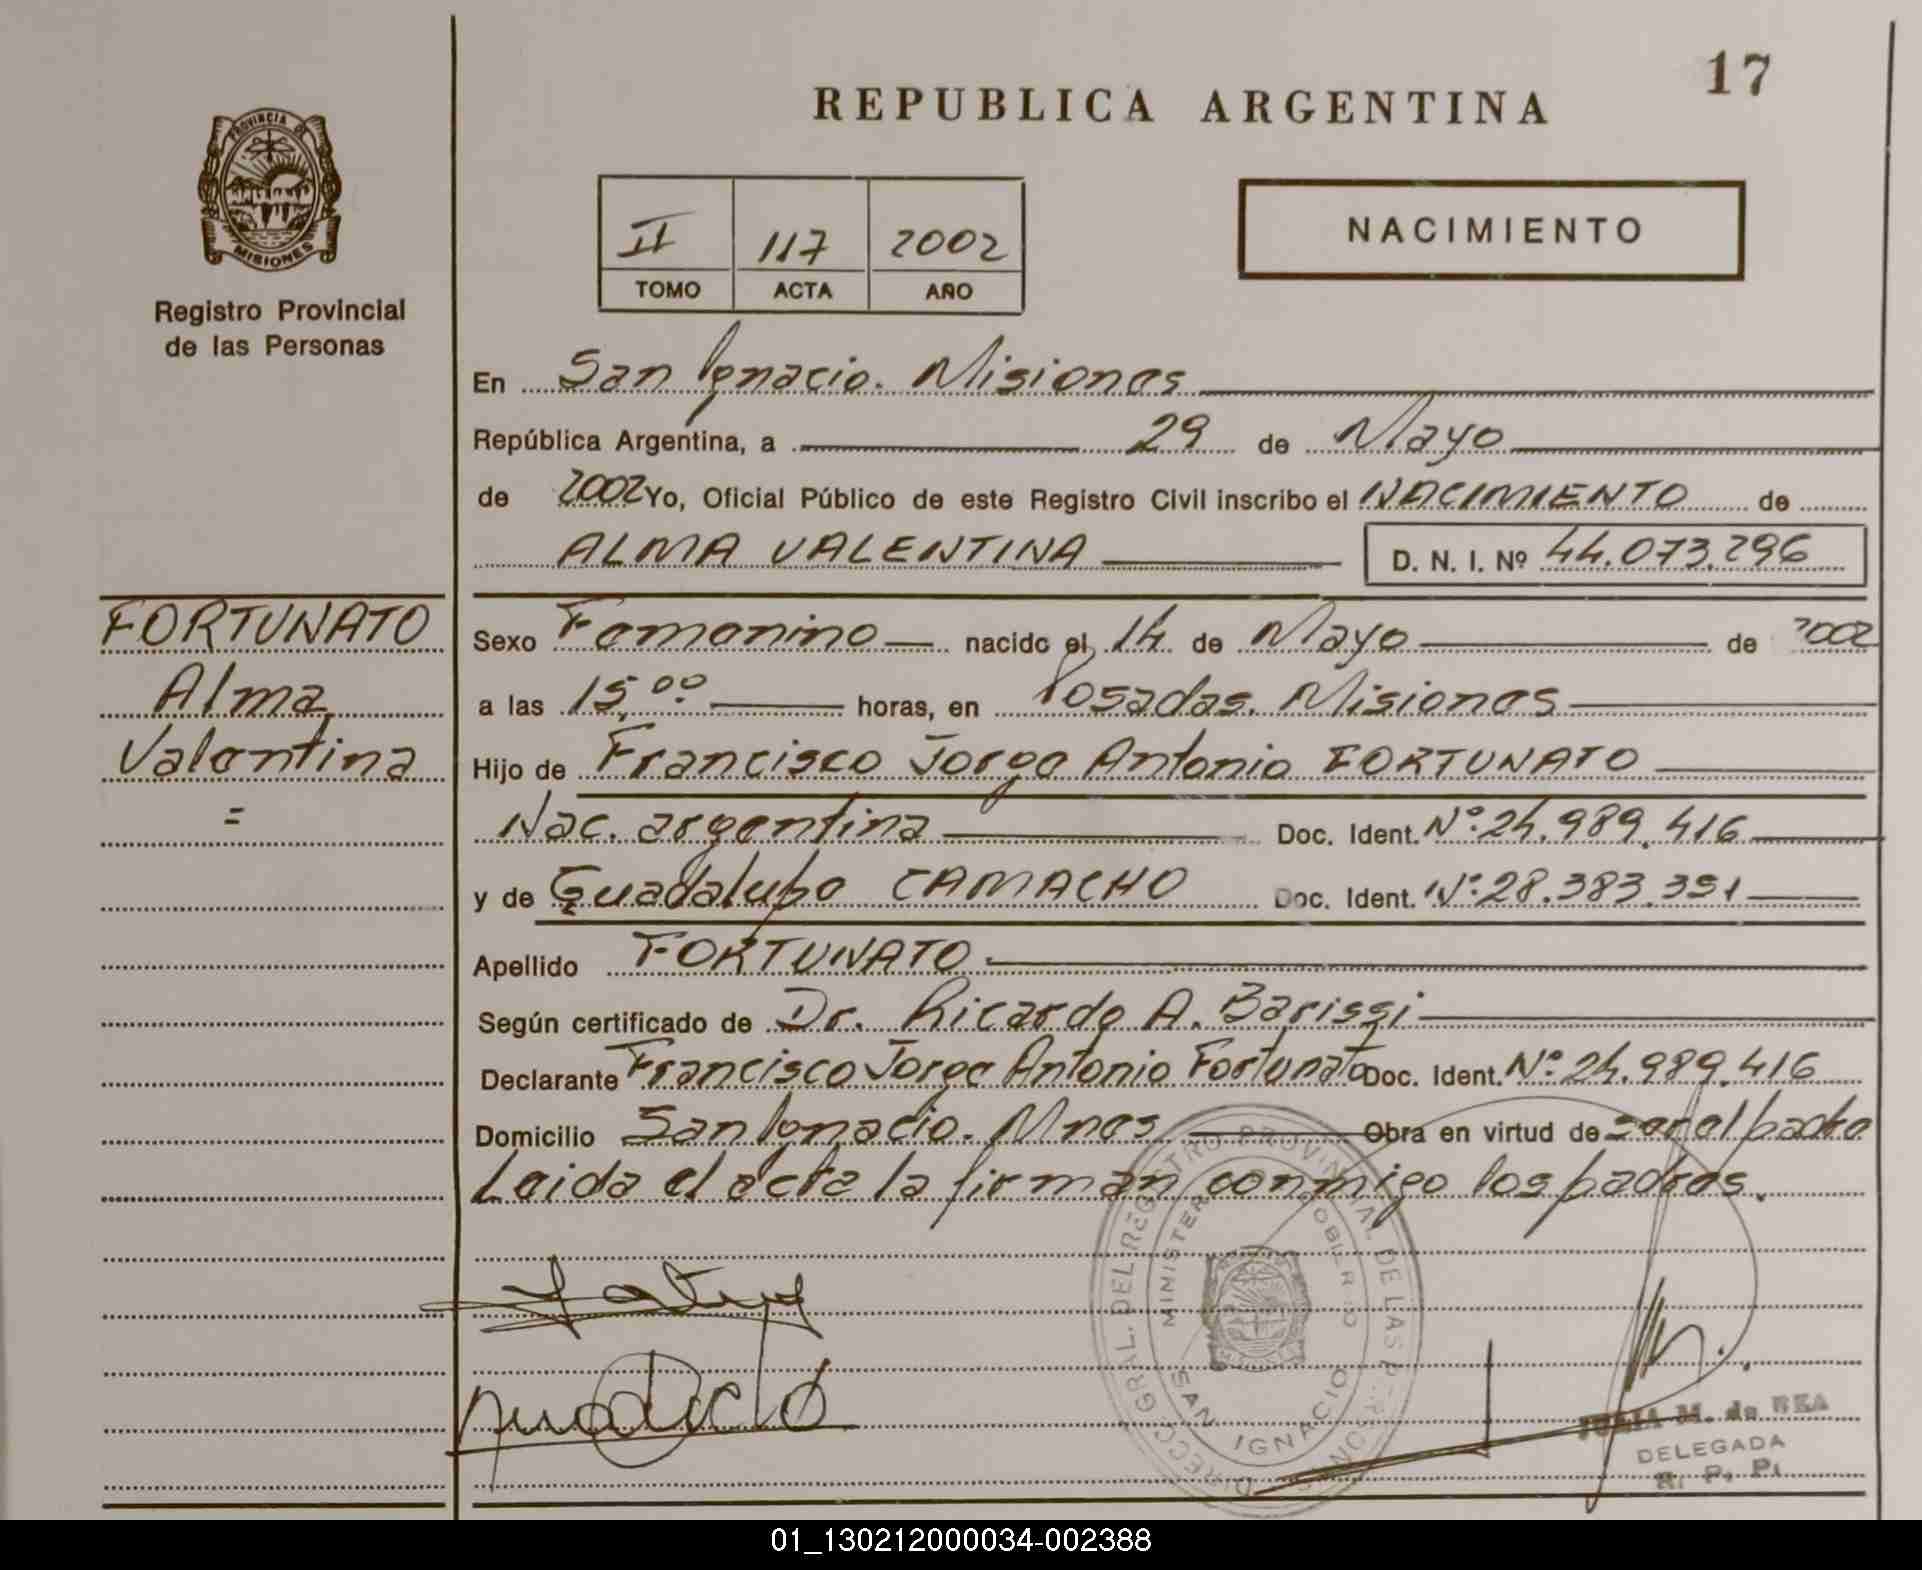 17
REPUBLICA ARGENTINA
PROVINCIA DE
MISIONES
Registro Provincial
de las Personas
II 117 2002
TOMO ACTA AÑO
NACIMIENTO
En San Ignacio. Misiones
República Argentina, a 29 de Mayo
de 2002 Yo, Oficial Público de este Registro Civil inscribo el NACIMIENTO de
ALMA VALENTINA D. N. I. Nº 44.073.296
FORTUNATO
Alma
Valentina
=
Sexo Femenino nacido el 14 de Mayo de 2002
a las 15,00 horas, en Posadas. Misiones
Hijo de Francisco Jorge Antonio FORTUNATO
Nac. argentina Doc. Ident. Nº: 24.989.416
y de Guadalupe CAMACHO Doc. Ident. Nº: 28.383.351
Apellido FORTUNATO
Según certificado de Dr. Ricardo A. Barissi
Declarante Francisco Jorge Antonio Fortunato Doc. Ident. Nº: 24.989.416
Domicilio San Ignacio. Mnes Obra en virtud de ser el padre
Leida el acta la firman conmigo los padres.
DIRECC. GRAL. DEL REGISTRO PROVINCIAL DE LAS PERSONAS
MINISTERIO GOBIERNO
SAN IGNACIO
JULIA M. de REA
DELEGADA
R. P. P.
01_130212000034-002388